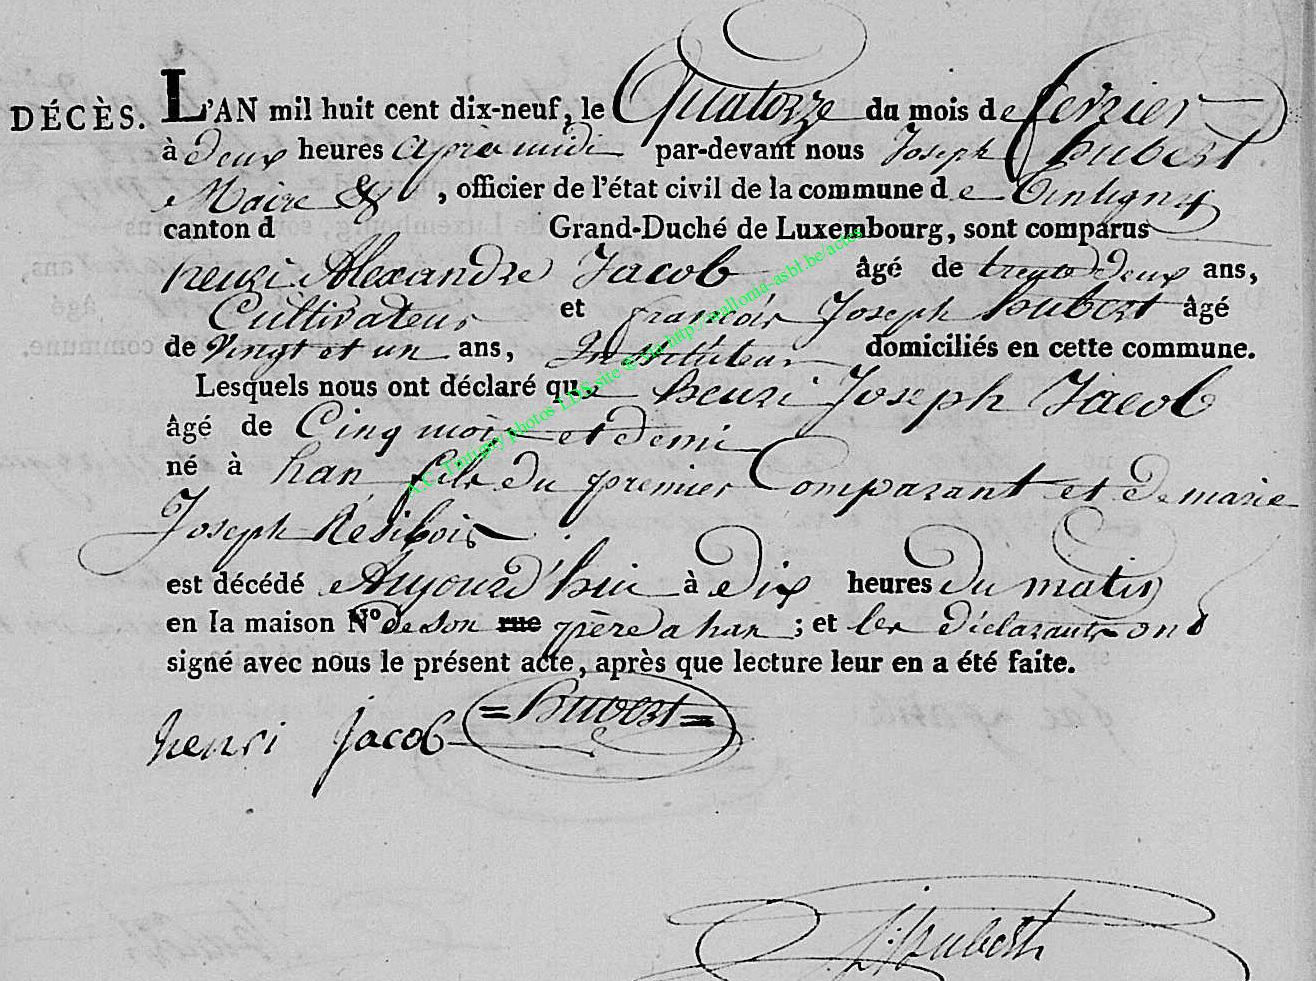 DÉCÈS. L'AN mil huit cent dix-neuf, le Quatorze du mois de fevrier
à deux heures Après midi par-devant nous Joseph hubert
Maire &c, officier de l'état civil de la commune de Tintigny
canton d Grand-Duché de Luxembourg, sont comparus
henri Alexandre Jacob âgé de trente deux ans,
Cultivateur et francois Joseph hubert âgé
de Vingt et un ans, Instituteur domiciliés en cette commune.
Lesquels nous ont déclaré que henri Joseph Jacob
âgé de Cinq mois et demi
né à han, fils du premier Comparant et de marie
Joseph Resibois
est décédé Aujourd'hui à dix heures du matin
en la maison N° de son rue père a han ; et les déclarants ont
signé avec nous le présent acte, après que lecture leur en a été faite.
henri Jacob =Hubert=
J: Hubert
A.C. Tintigny photos LDS site © via http://wallonia-asbl.be/actes